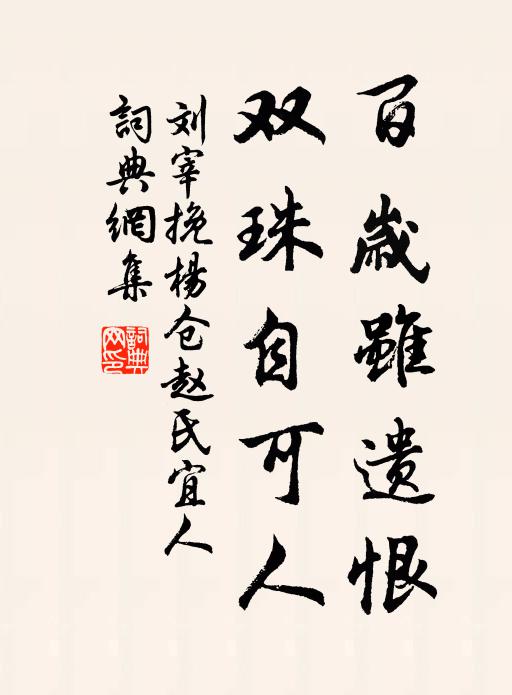 百歲雖遗恨
双珠自可人
刘宰挽杨仓赵氏宜人
詞典網集
詞典網印